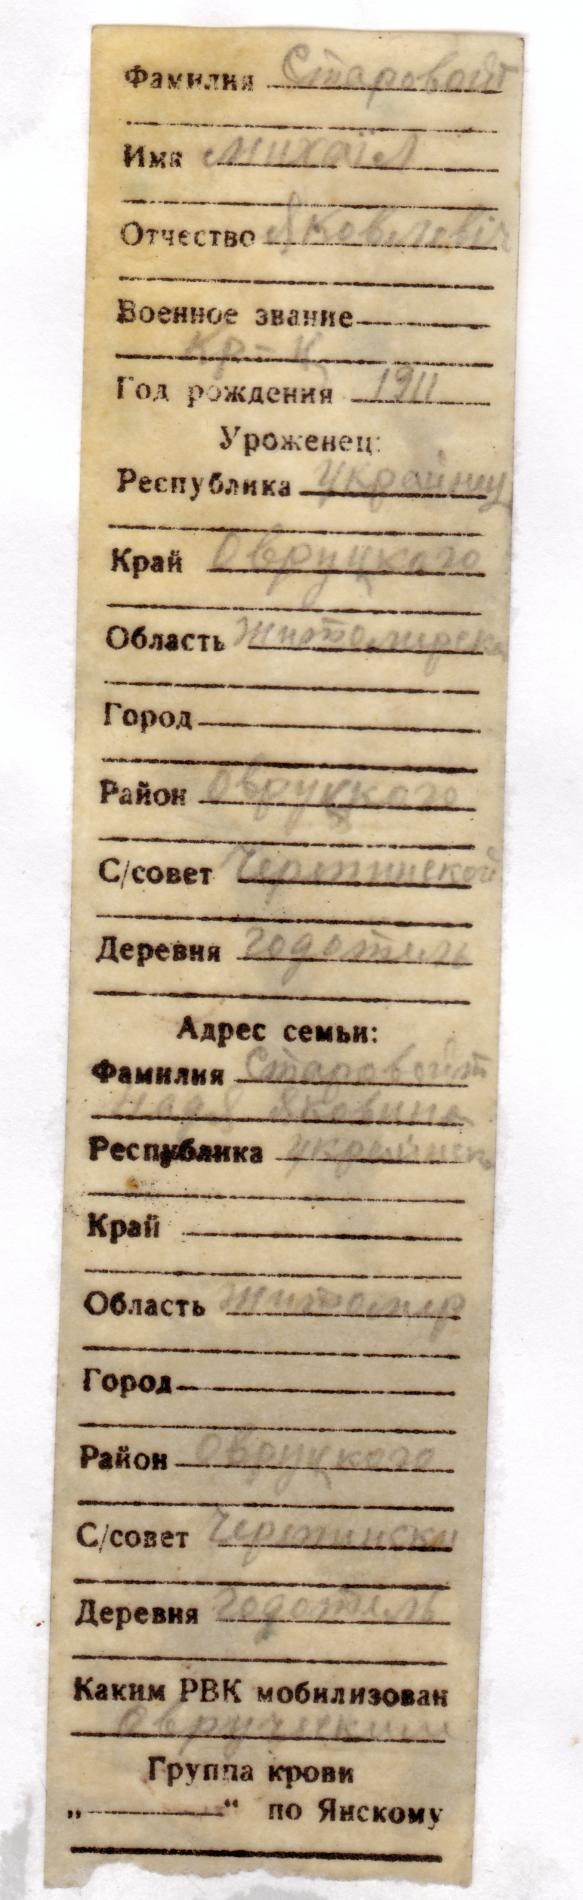 Фамилия Старовойт
Имя Михаіл
Отчество Яковлевіч
Военное звание
кр-ц
Год рождения 1911
Уроженец:
Республика
Край Овруцкого
Область Житомирска
Город
Район Овруцкого
С/совет
Деревня Годотемль
Адрес семьи:
Фамилия Старовойт
Надя
Республика
Край
Область Житомир
Город
Район Овруцкого
С/совет
Деревня Годотемль
Каким РВК мобилизован
Овручским
Группа крови
„ “ по Янскому